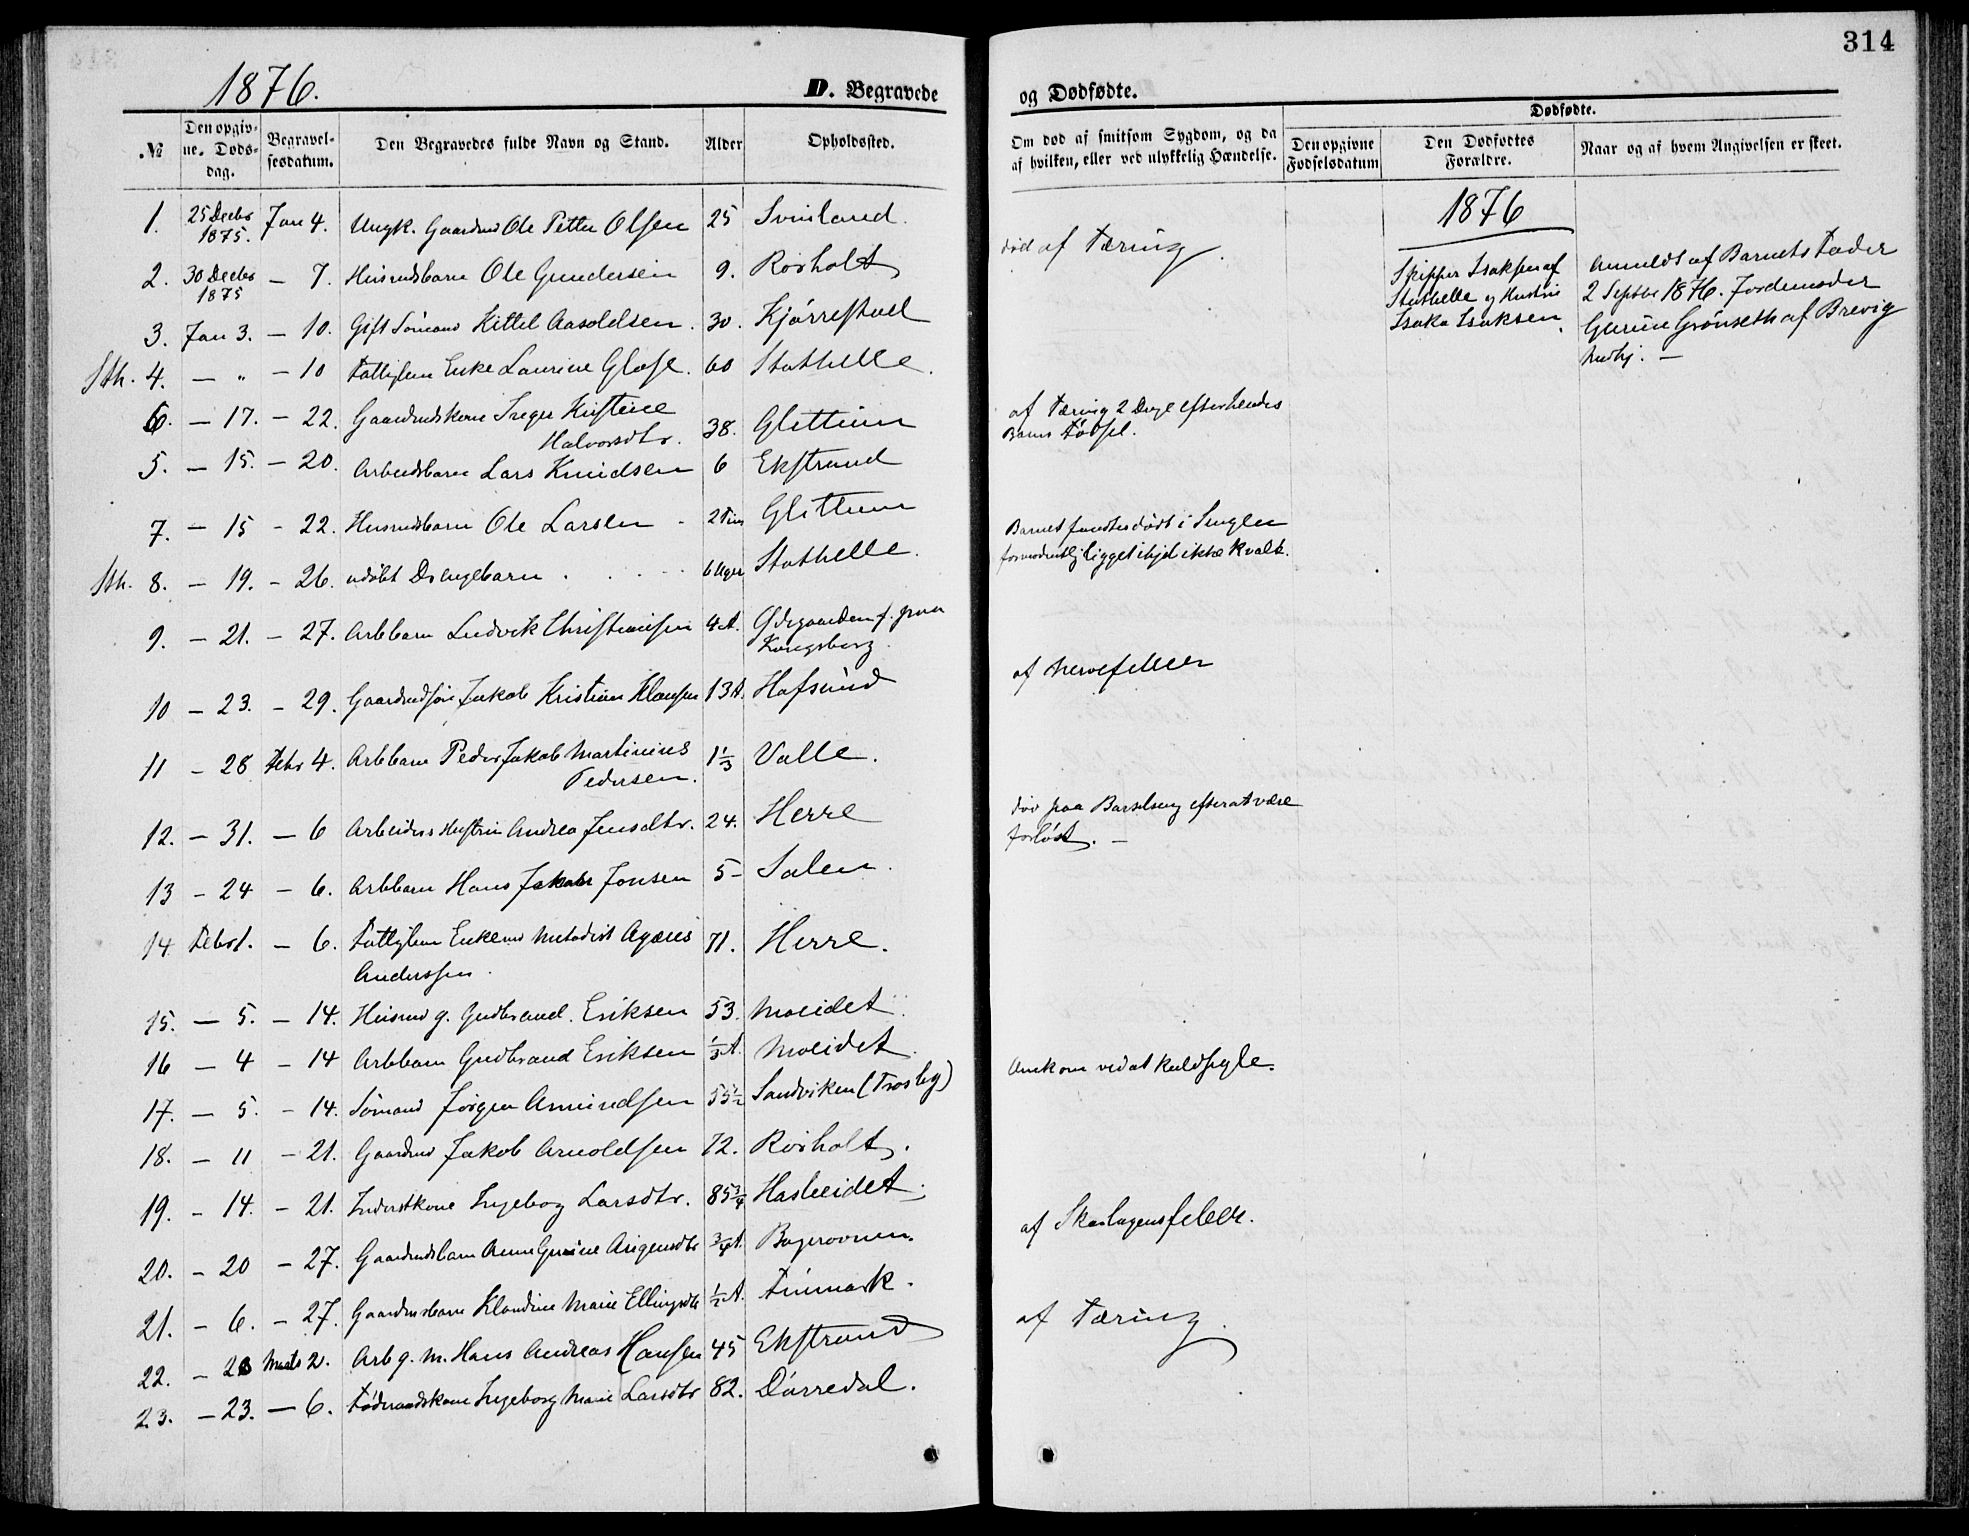 314
1876.
D. Begravede
og Dødfødte.
№
Den opgiv-
ne. Døds-
dag.
Begravel-
sesdatum.
Den Begravedes fulde Navn og Stand.
Alder
Opholdssted.
Om død af smitsom Sygdom, og da
af hvilken, eller ved ulykkelig Hændelse.
Dødfødte.
Den opgivne
Fødselsdatum
Den Dødfødtes
Forældre.
Naar og af hvem Angivelsen er skeet.
1. 25 Decbr 1875. Jan 4. Ungk. Gaardmd Ole Petter Olsen 25 Svinland.
død af Tæring.
2. 30 Decbr 1875 — 7. Husmdsbarn Ole Gundersen 9. Rörholt
3. Jan 3. — 10. Gift Sömand Kittel Aasoldsen. 30. Kjörrestad
Sth. 4. — " — 10 Fattiglem Enke Laurine Glose. 60 Stathelle.
6. — 17. — 22. Gaardmdskone Inger Kirstine
Halvorsdtr. 38. Glittum
af Tæring 2 Dage efter hendes
Barns Födsel.
5. — 15. — 20. Arbeidsbarn Lars Knudsen 6 Ekstrand
7. — 15 — 22. Husmdsbarn Ole Larsen 2 Tim Glittum
Barnet fandtes dödt i Sengen
formodentlig ligget ihjel ikke kvalt.
Sth. 8. — 19. — 26. udöbt Drengebarn . . . . 6 Uger Stathelle.
9. — 21. — 27. Arbbarn Ludvik Christiansen 4 A. Ödegaarden f. paa
Kongsberg.
10 — 23. — 29. Gaardmdsön Jakob Kristian Klausen 13 A. Hafsund
af Nervefeber
11 — 28 Febr 4. Arbbarn Peder Jakob Martinius
Pedersen. 1 1/3 Valle.
12. — 31. — 6 Arbeiders Hustru Andrea Jensdtr. 24. Herre
död paa Barselseng efter at være
forlöst. —
13 — 24 — 6. Arbbarn Hans Jakob Jonsen 5 — Salen.
14. Febr 1. — 6. Fattiglem Enkemd Metodist
Anderssen. 71. Herre.
15. — 5. — 14. Husmd g. Gudbrand. Eriksen 53. Moeidet
16 — 4 — 14 Arbbarn Gudbrand Eriksen 1/3 A. Moeidet.
17. — 5. — 14. Sömand Jörgen Amundsen 55 1/2 Sandviken (Trosby)
Omkom ved at kuldseyle.
18. — 11 — 21. Gaardmd Jakob Arnoldsen 72. Rörholt.
19. — 14. — 21. Inderstkone Ingebog Larsdtr. 85 3/4 Hasleidet.
20. — 20 — 27. Gaardmdsbarn Anne 3/4 A.
af Skarlagensfeber.
21. — 6. — 27. Gaardmdsbarn Klandine Marie Ellingsdtr 1/2 A. Finmark.
22. — 28 Marts 2. Arb g. M. Hans Andreas Hansen 45 Ekstrand
af Tæring.
23. — 23. — 6. Föderaadskone Ingeborg Marie Larsdtr 82. Dörredal.
1876
Skipper Isaksen af
Stathelle og Hustru
Isaksen.
Anmeldt af Barnets Fader
2 Septbr 1876. Jordemoder
Gurine Grönseth af Brevig